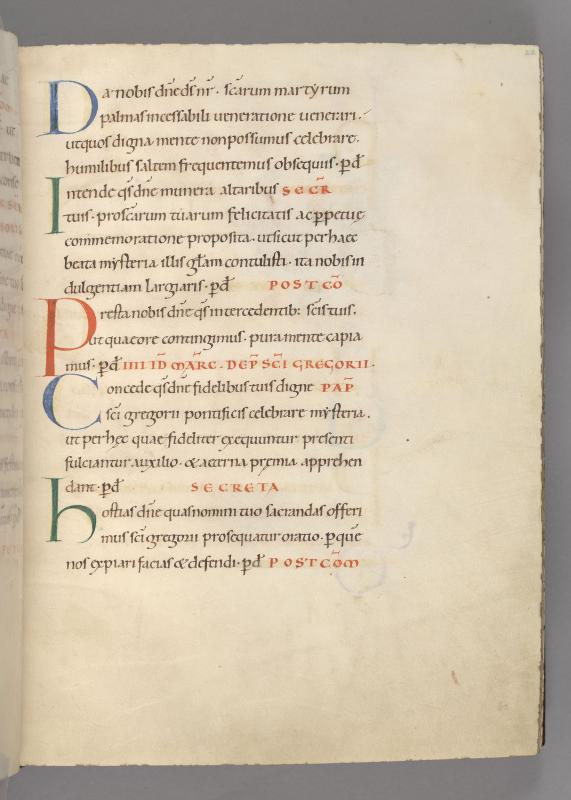 Da nobis dn̄e ds̄ nr̄ · sc̄arum martyrum
palmas incessabili ueneratione uenerari.
ut quos digna mente non possumus celebrare.
humilibus saltem frequentemus obsequiis · p̱d̄
Intende qs̄ dn̄e munera altaribus SECR̄
tuis · pro sc̄arum tuarum felicitatis ac p̱petuę
commemoratione proposita · ut sicut per haec
beata mysteria illis gl̄am contulisti · ita nobis in
dulgentiam largiaris · p̱d̄ POST CŌ
Presta nobis dn̄e qs̄ intercedentib: sc̄is tuis.
ut quae ore contingimus · pura mente capia
mus · p̱d̄ IIII ID̄ MĀRC · DEP̄ SC̄I GREGORII ·
Concede qs̄ dn̄e fidelibus tuis digne PAP̄
sc̄i gregorii pontificis celebrare mysteria.
ut per hęc quae fideliter exequuntur presenti
fulciantur auxilio · & aeterna pręmia apprehen
dant · p̱d̄ SECRETA
hostias dn̄e quas nomini tuo sacrandas offeri
mus sc̄i gregorii prosequatur oratio · p̱ quē
nos expiari facias & defendi · p̱d̄ POST CŌM